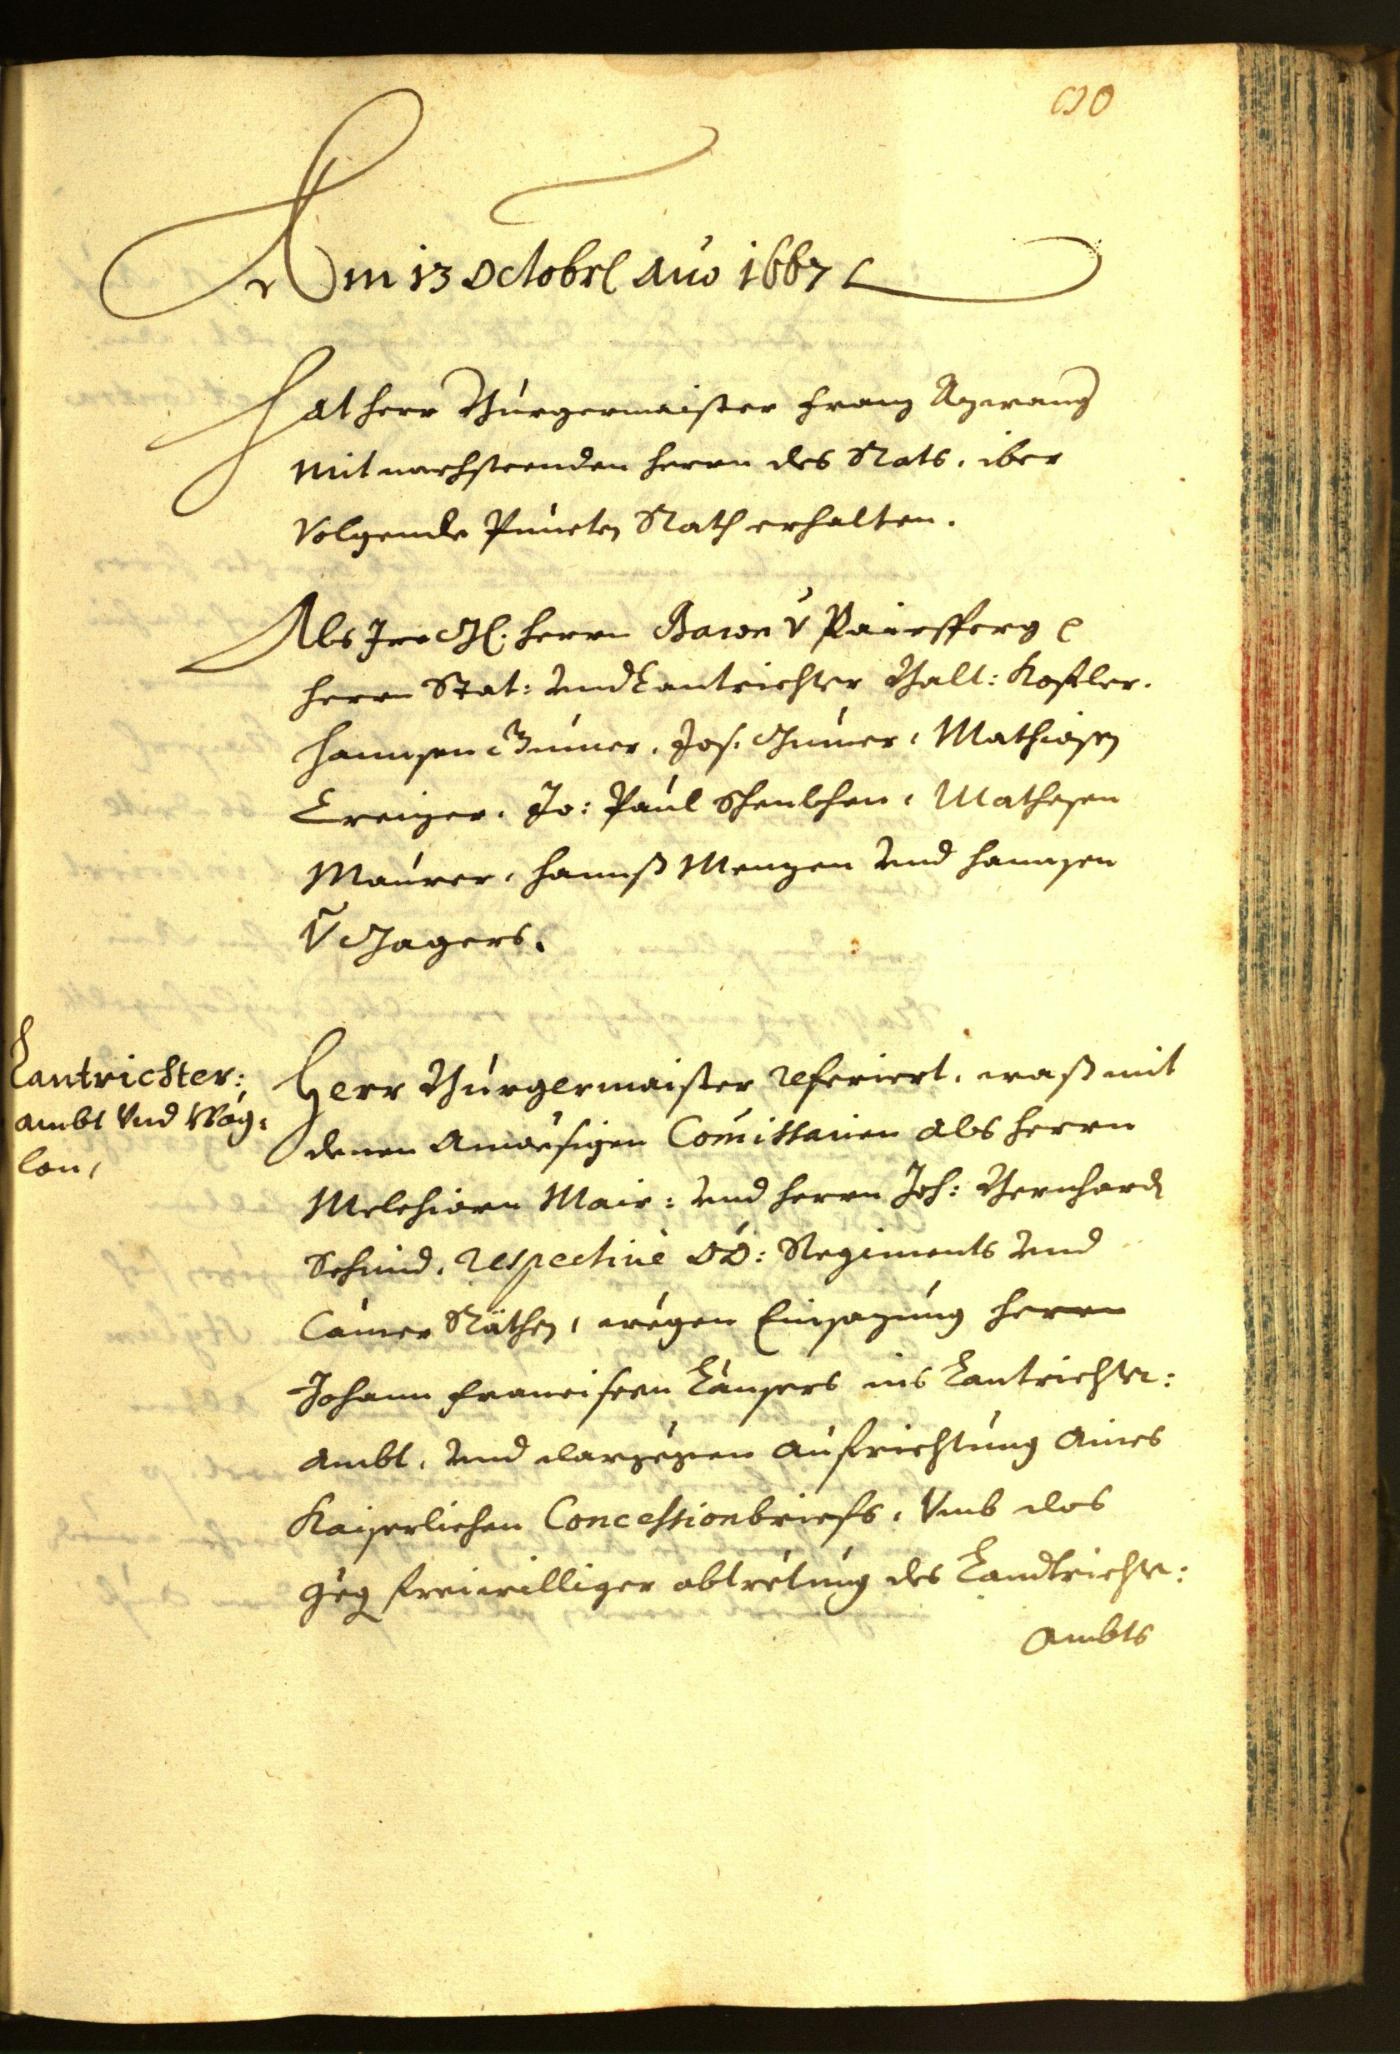 Am 13 Octobrl Anno 1667
Hat herr Burgermaister Franz Agwang
mit nachsteenden herrn des Rats, iber
volgende Puncten Rath erhalten.
Als Irr Gl. herrn Baron v
herrn Stat: und Lantrichter Valt: Kofler.
Hannsen Gumer, Jos. Gumer, Mathiasen
Jo: Paul Schenkhen, Mathesen
Maurer, Hannß Menzen und Hannsen
v Jagers.
Lantrichter:
ambt und Wag:
Herr Burgermaister referiert, waß mit
denen Anwesigen Comissarien als herrn
Melchiorn Mair: und herrn Joh: Bernhard
Schmid, respective OÖ: Regiments und
Camer Räthen, wegen Einsazung herrn
Johann Franciscen ins Lantrichter:
ambt, und dargegen aufrichtung aines
Kaiserlichen Concessionbriefs, umb das
geg freiwilliger abtretung des Landtrichter:
Ambts